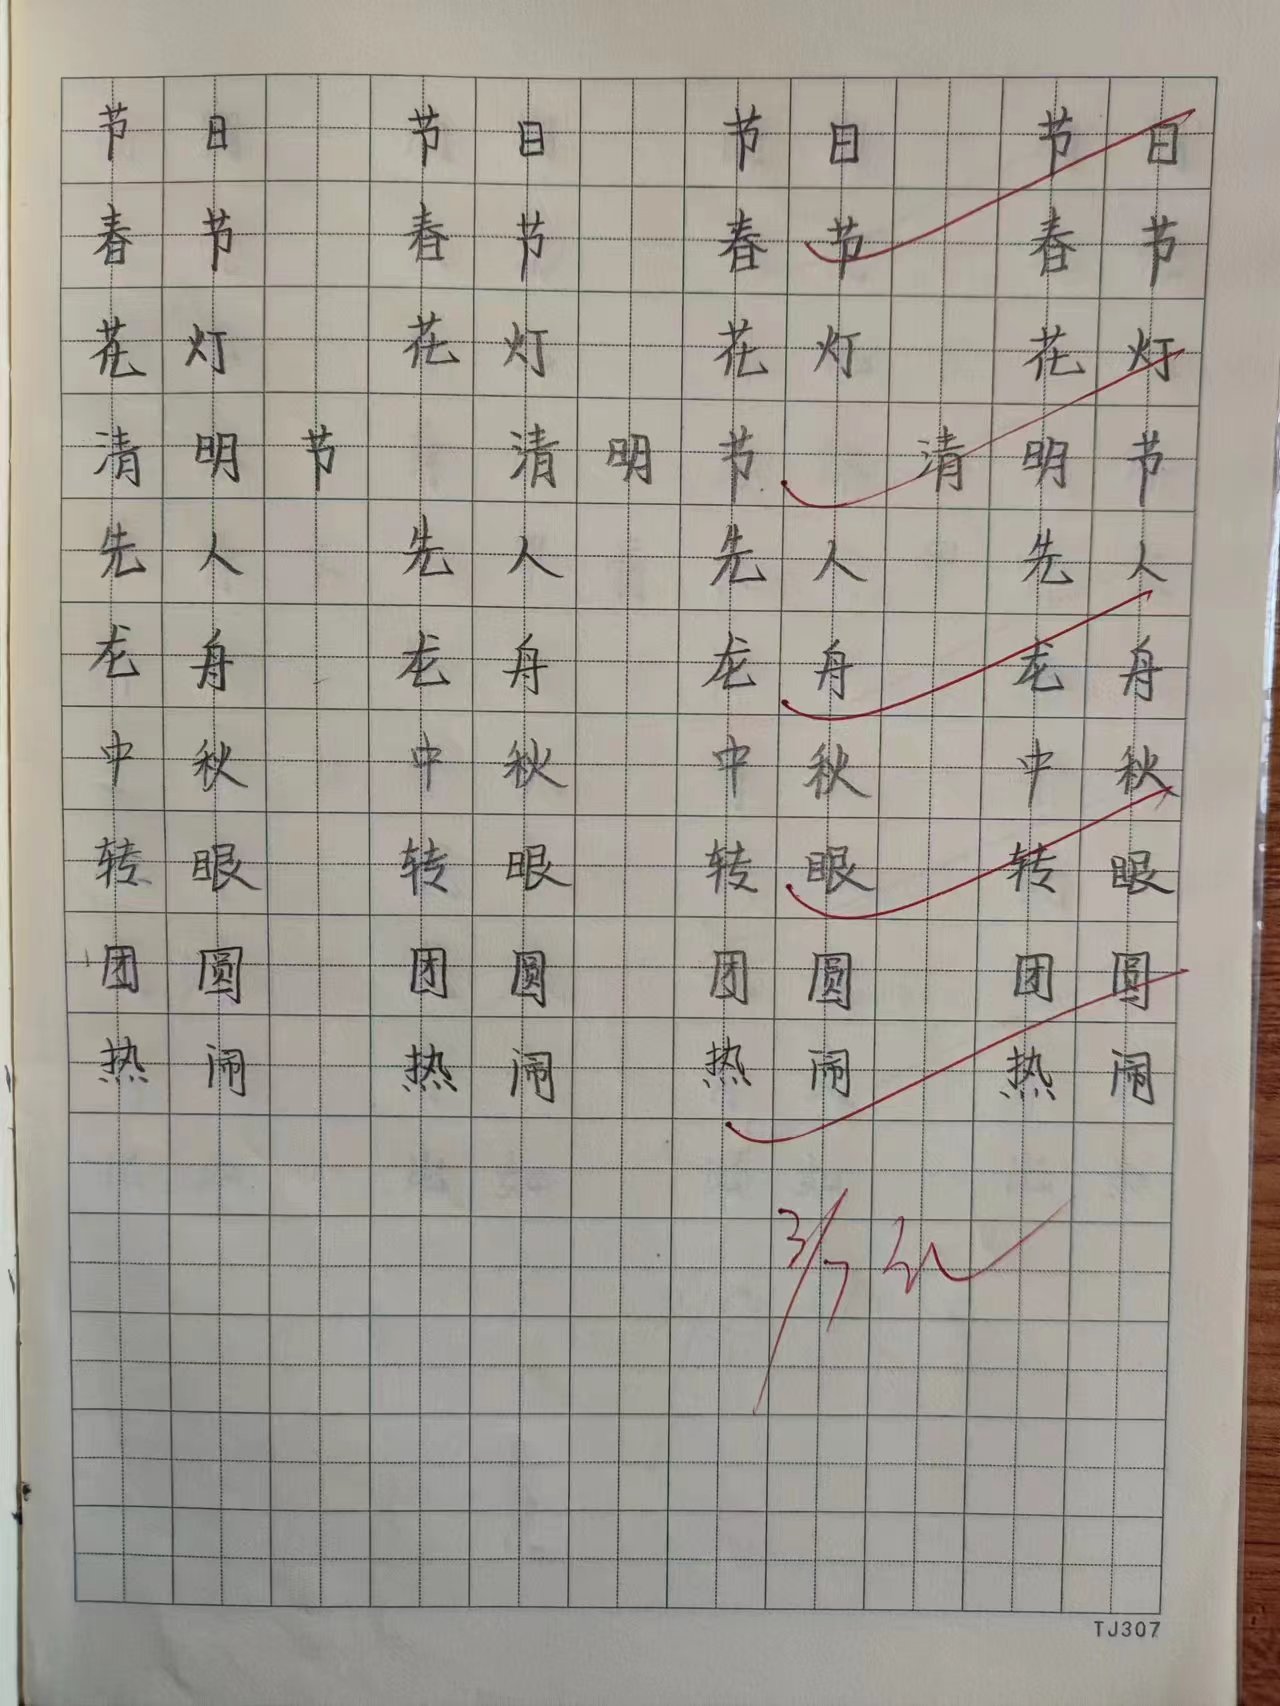 节日 节日 节日 节日
春节 春节 春节 春节
花灯 花灯 花灯 花灯
清明节 清明节 清明节
先人 先人 先人 先人
龙舟 龙舟 龙舟 龙舟
中秋 中秋 中秋 中秋
转眼 转眼 转眼 转眼
团圆 团圆 团圆 团圆
热闹 热闹 热闹 热闹
3/7
TJ307